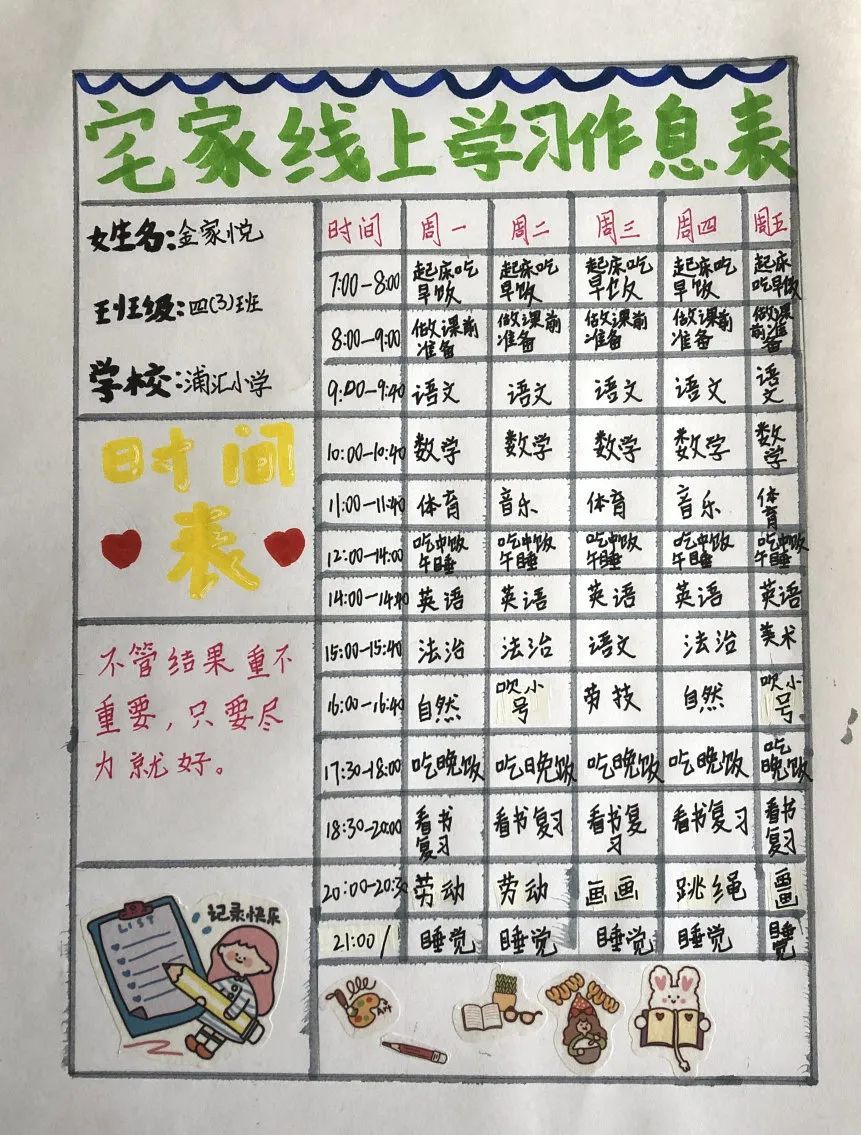 宅家线上学习作息表
女生名:金家悦
班级:四(3)班
学校:浦汇小学
时间表
不管结果重不
重要,只要尽
力就好。
LIST
记录快乐
时间 周一 周二 周三 周四 周五
7:00-8:00 起床吃早饭 起床吃早饭 起床吃早饭 起床吃早饭 起床吃早饭
8:00-9:00 做课前准备 做课前准备 做课前准备 做课前准备 做课前准备
9:00-9:40 语文 语文 语文 语文 语文
10:00-10:40 数学 数学 数学 数学 数学
11:00-11:40 体育 音乐 体育 音乐 体育
12:00-14:00 吃中饭午睡 吃中饭午睡 吃中饭午睡 吃中饭午睡 吃中饭午睡
14:00-14:40 英语 英语 英语 英语 英语
15:00-15:40 法治 法治 语文 法治 美术
16:00-16:40 自然 吹小号 劳技 自然 吹小号
17:30-18:00 吃晚饭 吃晚饭 吃晚饭 吃晚饭 吃晚饭
18:30-20:00 看书复习 看书复习 看书复习 看书复习 看书复习
20:00-20:30 劳动 劳动 画画 跳绳 画画
21:00/ 睡觉 睡觉 睡觉 睡觉 睡觉
Art